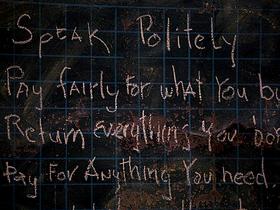 Speak Politely
Pay fairly for what You bu
Return everything you 'don
Pay For Anything You need.